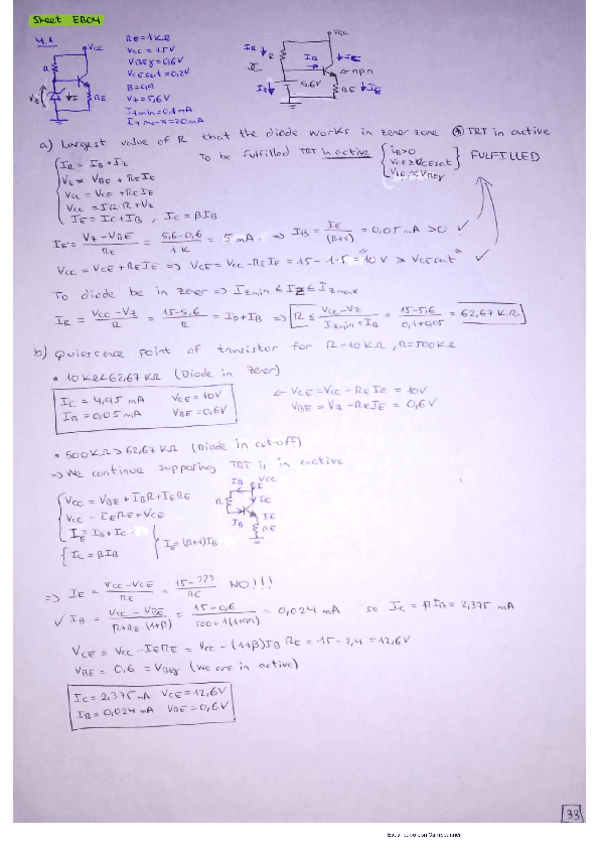 Sheet EB04
4.1
RE=1KΩ
VCC=15V
VBEγ=0,6V
VCEsat=0,2V
VZ=5,6V
IZmin=0,1mA
IZmax=20mA
VCC
R
RE
VCC
IR
R
IB
IE
npn
5,6V
IZ
RE
IE
a) Largest value of R that the diode works in zener zone TRT in active
To be fulfilled TRT in active { iB>0 VCE≥VCEsat VBE≈VBEγ } FULFILLED
IR = IB + IZ
VZ = VBE + REIE
VCC = VCE + REIE
VCC = IR·R + VZ
IE = IC + IB , IC = βIB
IE = (VZ - VBE)/RE = (5,6 - 0,6)/1K = 5 mA ⇒ IB = IE/(β+1) = 0,05 mA >0 ✓
VCC = VCE + REIE ⇒ VCE = VCC - REIE = 15 - 1·5 = 10V ≥ VCEsat ✓
To diode be in zener ⇒ IZmin ≤ IZ ≤ IZmax
IR = (VCC - VZ)/R = (15 - 5,6)/R = IB + IB ⇒ R ≤ (VCC - VZ)/(IZmin + IB) = (15 - 5,6)/(0,1 + 0,05) = 62,67 KΩ
b) Quiescence point of transistor for R=10KΩ, R=500KΩ
• 10KΩ<62,67KΩ (Diode in zener)
IC = 4,95 mA VCE = 10V
IB = 0,05 mA VBE = 0,6V
← VCE = VCC - REIE = 10V
VBE = VZ - REIE = 0,6V
• 500KΩ>62,67KΩ (Diode in cut-off)
⇒ We continue supposing TRT is in active
VCC = VBE + IBR + IERE
VCC = IERE + VCE
IE = IB + IC
IC = βIB
IE = (β+1)IB
IB
VCC
R
IC
IB
IE
RE
⇒ IE = (VCC - VCE)/RE = (15 - ???)/RE NO!!!
✓ IB = (VCC - VBE)/(R + RE·(1+β)) = (15 - 0,6)/(500 + 1(1+99)) = 0,024 mA so IC = βIB = 2,375 mA
VCE = VCC - IERE = VCC - (1+β)IB RE = 15 - 2,4 = 12,6V
VBE = 0,6 = VBEγ (we are in active)
IC = 2,375 mA VCE = 12,6V
IB = 0,024 mA VBE = 0,6V
33